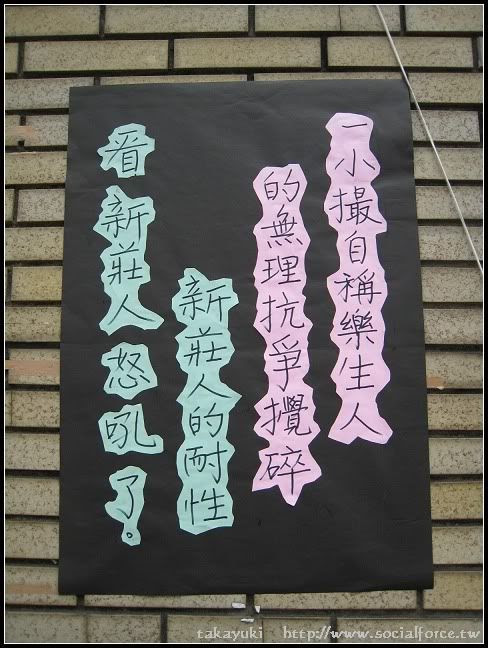 一小撮自稱樂生人
的無理抗爭攪碎
新莊人的耐性
看新莊人怒吼了。
takayuki http://www.socialforce.tw